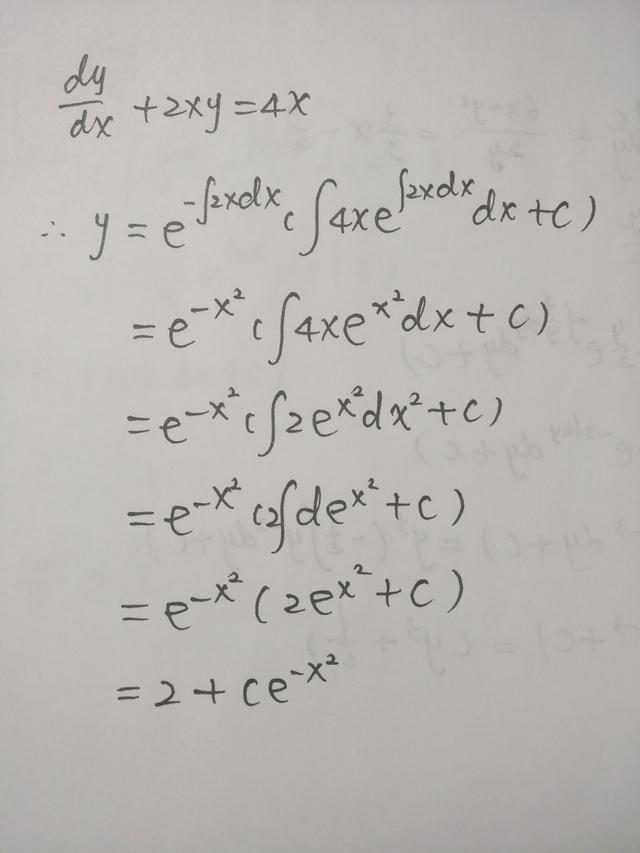 dy/dx + 2xy = 4x
∴ y = e^{-∫2xdx} (∫4xe^{∫2xdx} dx + c)
= e^{-x²} (∫4xe^{x²}dx + c)
= e^{-x²} (∫2e^{x²}dx² + c)
= e^{-x²} (2∫de^{x²} + c)
= e^{-x²} (2e^{x²} + c)
= 2 + ce^{-x²}